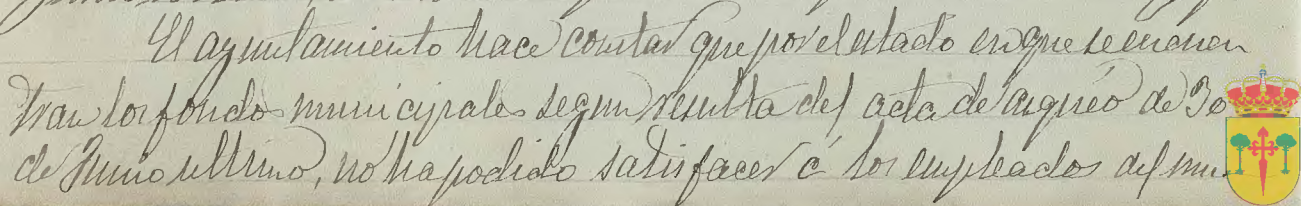 El ayuntamiento hace constar que por el estado en que se encuen
tran los fondos municipales segun resulta del acta de arqueo de 30
de Junio ultimo, no ha podido satisfacer á los empleados del mu